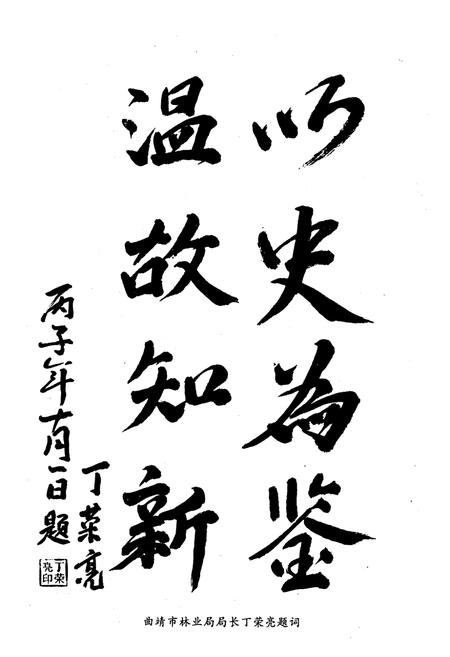 以史為鉴
温故知新
丙子年十月一日题
丁荣亮
丁荣亮印
曲靖市林业局局长丁荣亮题词